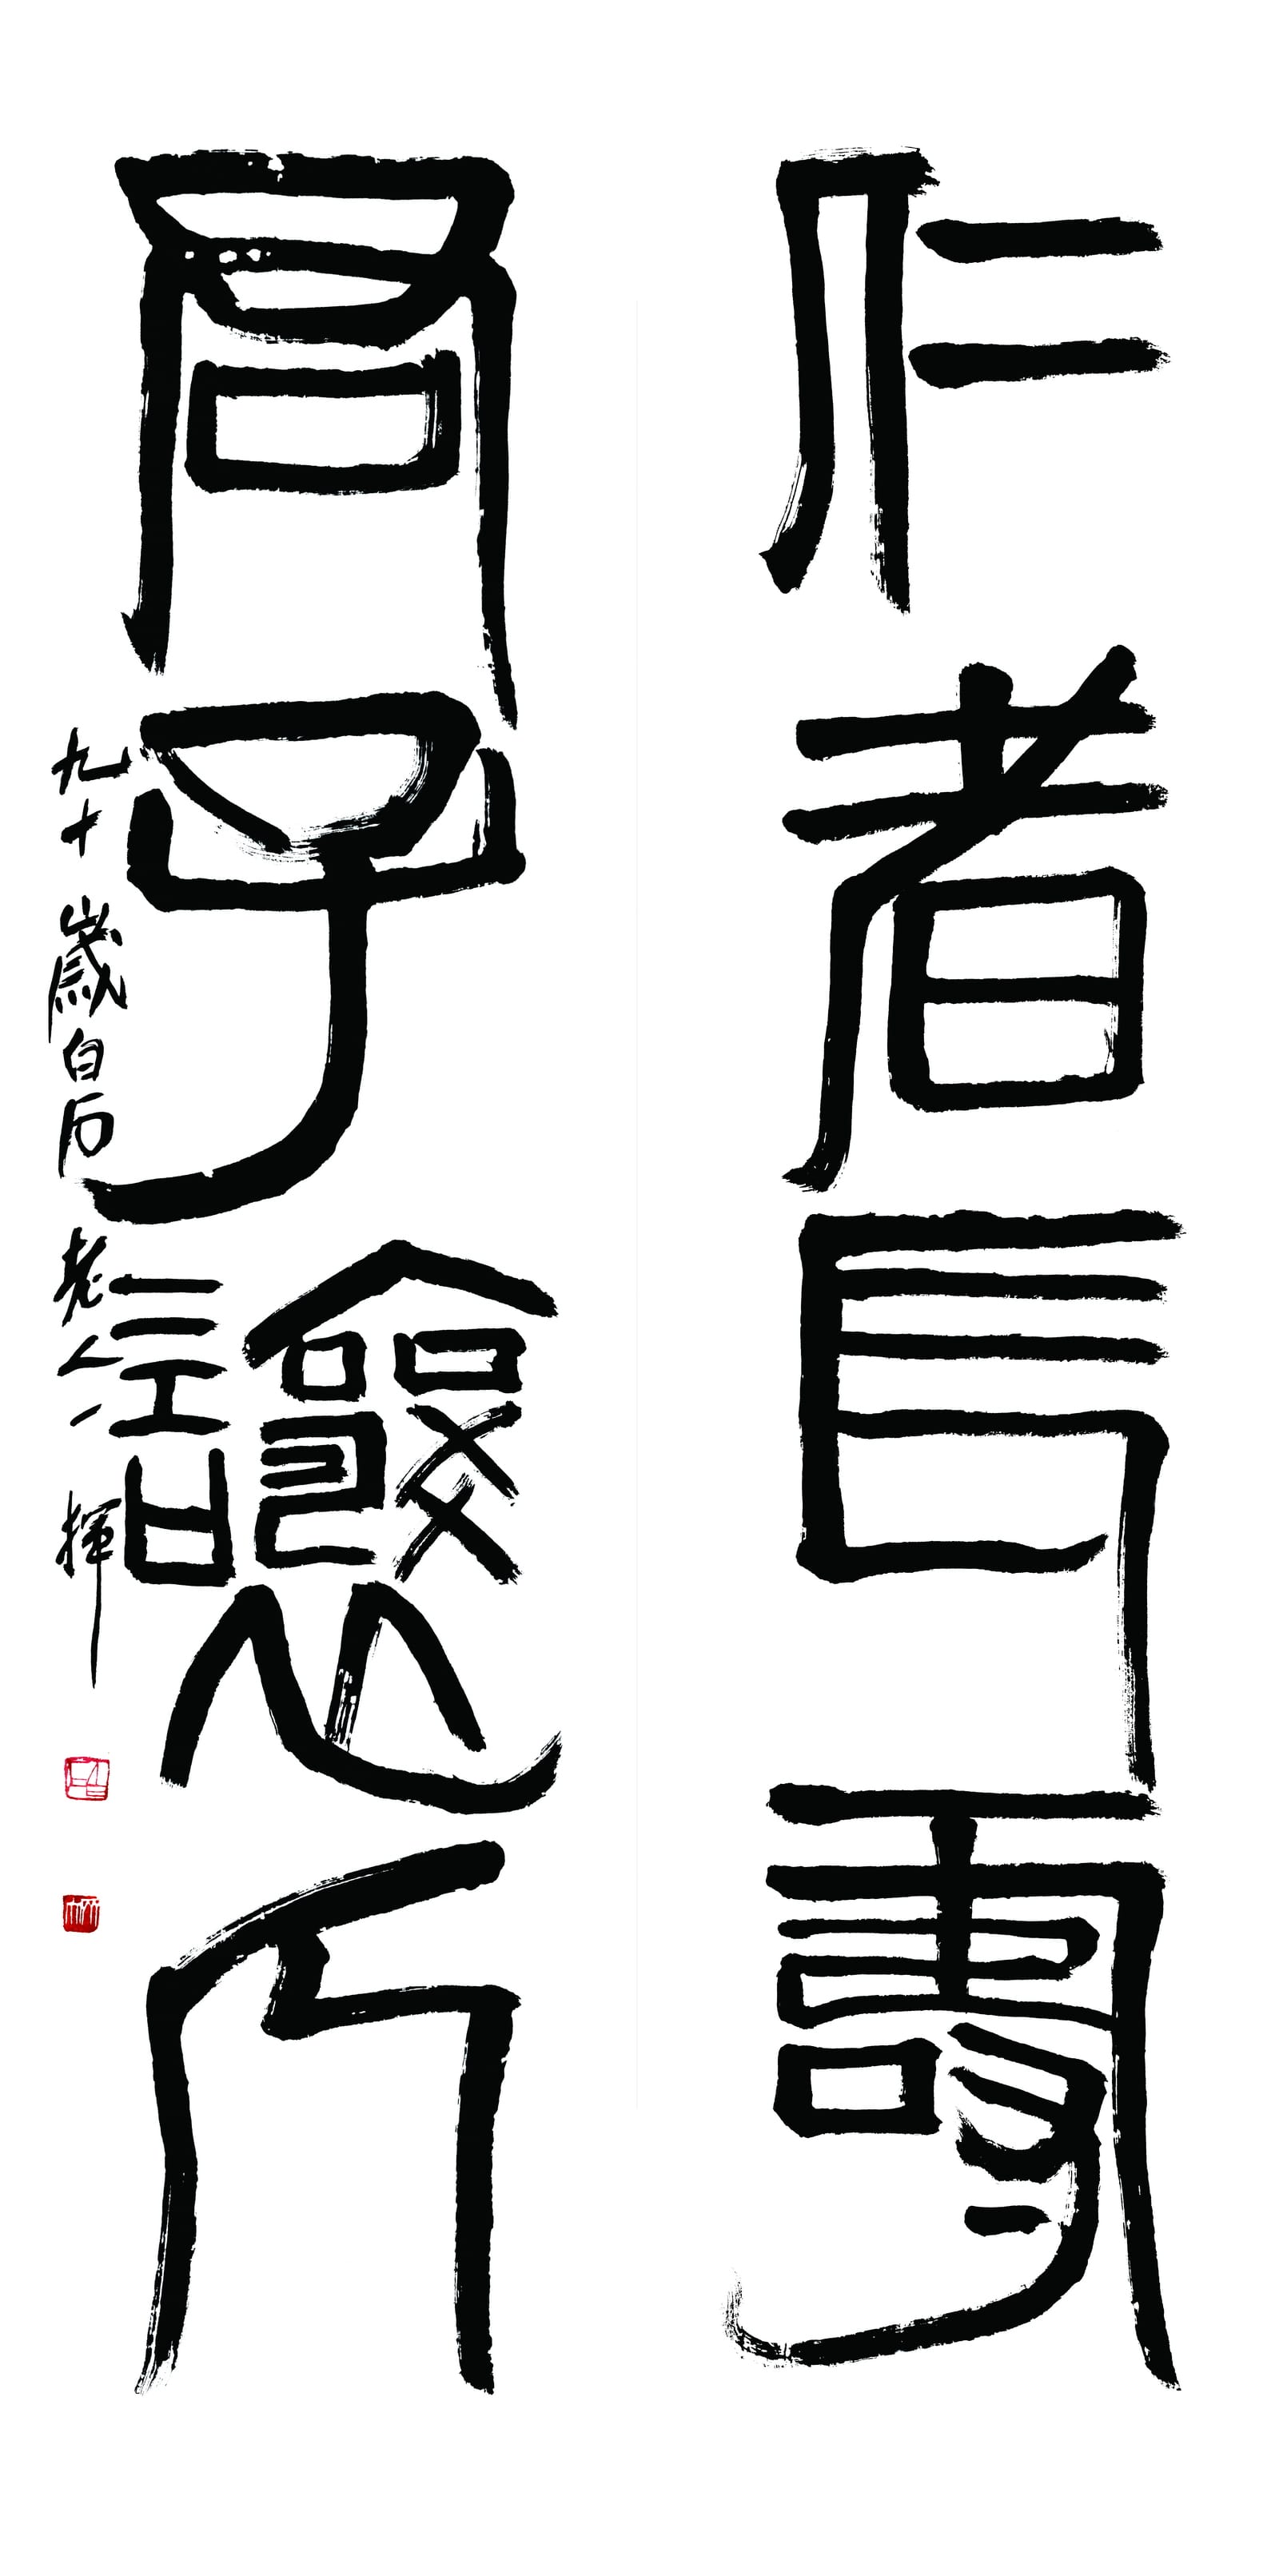 仁者長壽
君子讓
九十歲白石老人一揮